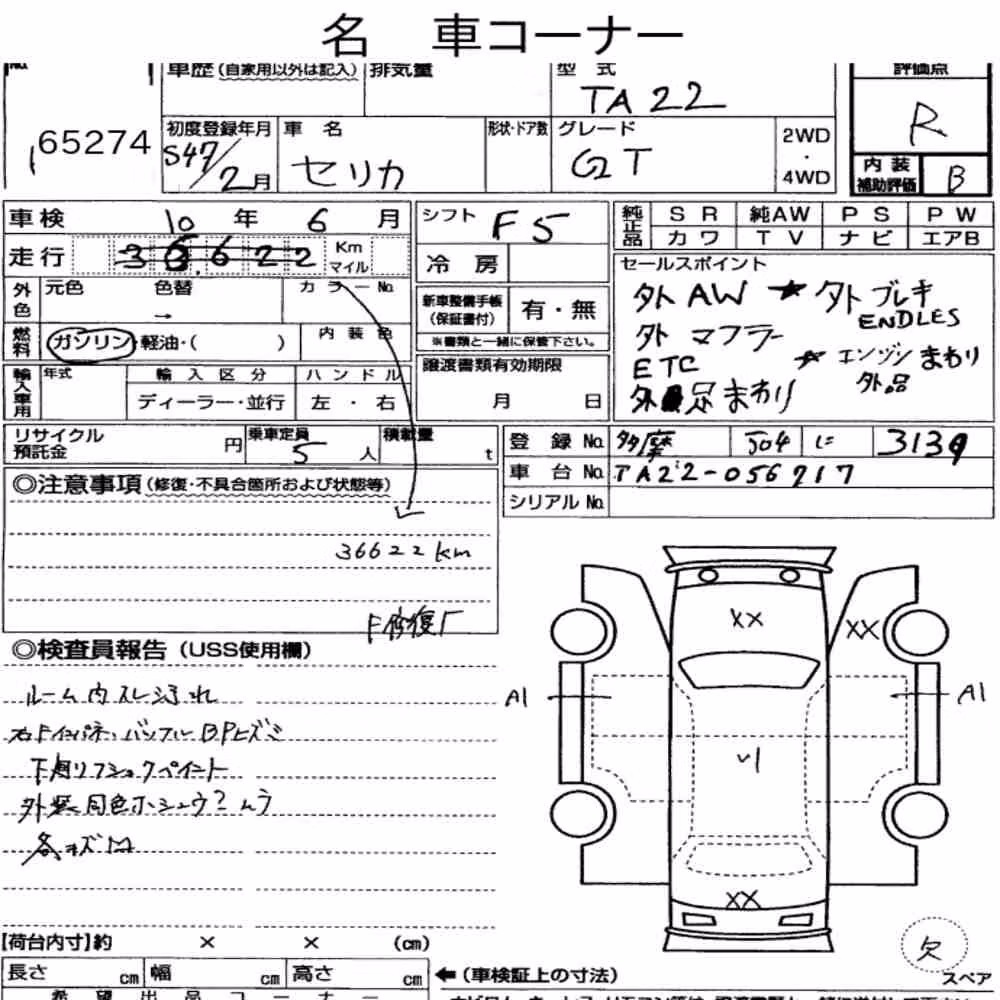 名 車コーナー
車歴 (自家用以外は記入) 排気量 型 式 評価点
TA22 R
65274
初度登録年月 車 名 形状・ドア数 グレード 2WD
・
S47/2月 セリカ GT 4WD
内 装
補助評価 B
車 検 10 年 6 月
シフト F5
純正品 S R 純AW P S P W
カ ワ T V ナ ビ エアB
走 行 36622 Km
マイル
冷 房
セールスポイント
外AW ★外ブレキ
ENDLES
外 マフラー
ETC ★エンジンまわり
外品
外 足まわり
外色 元色 色替 カラーNo.
→
新車整備手帳
(保証書付) 有・無
※書類と一緒に保管下さい。
燃料 ガソリン・軽油・( ) 内 装 色
譲渡書類有効期限
月 日
輸入車用 年式 輸 入 区 分 ハ ン ド ル
ディーラー・並行 左 ・ 右
リサイクル
預託金 円 乗車定員 5 人 積載量 t
登 録 No. 多摩 504 に 3139
車 台 No. TA22-056717
シリアル No.
◎注意事項 (修復・不具合箇所および状態等)
36622km
F修復
◎検査員報告 (USS使用欄)
ルーム内スレ汚れ
右Fインパネ、バックフルBPヒズミ
下廻リフショックペイント
外装同色ホシュウ?ムラ
各キズ凹
XX
XX
A1 A1
XX
欠
スペア
【荷台内寸】約 × × (cm)
長さ cm 幅 cm 高さ cm
← (車検証上の寸法)
希 望 出 品 コ ー ナ ー